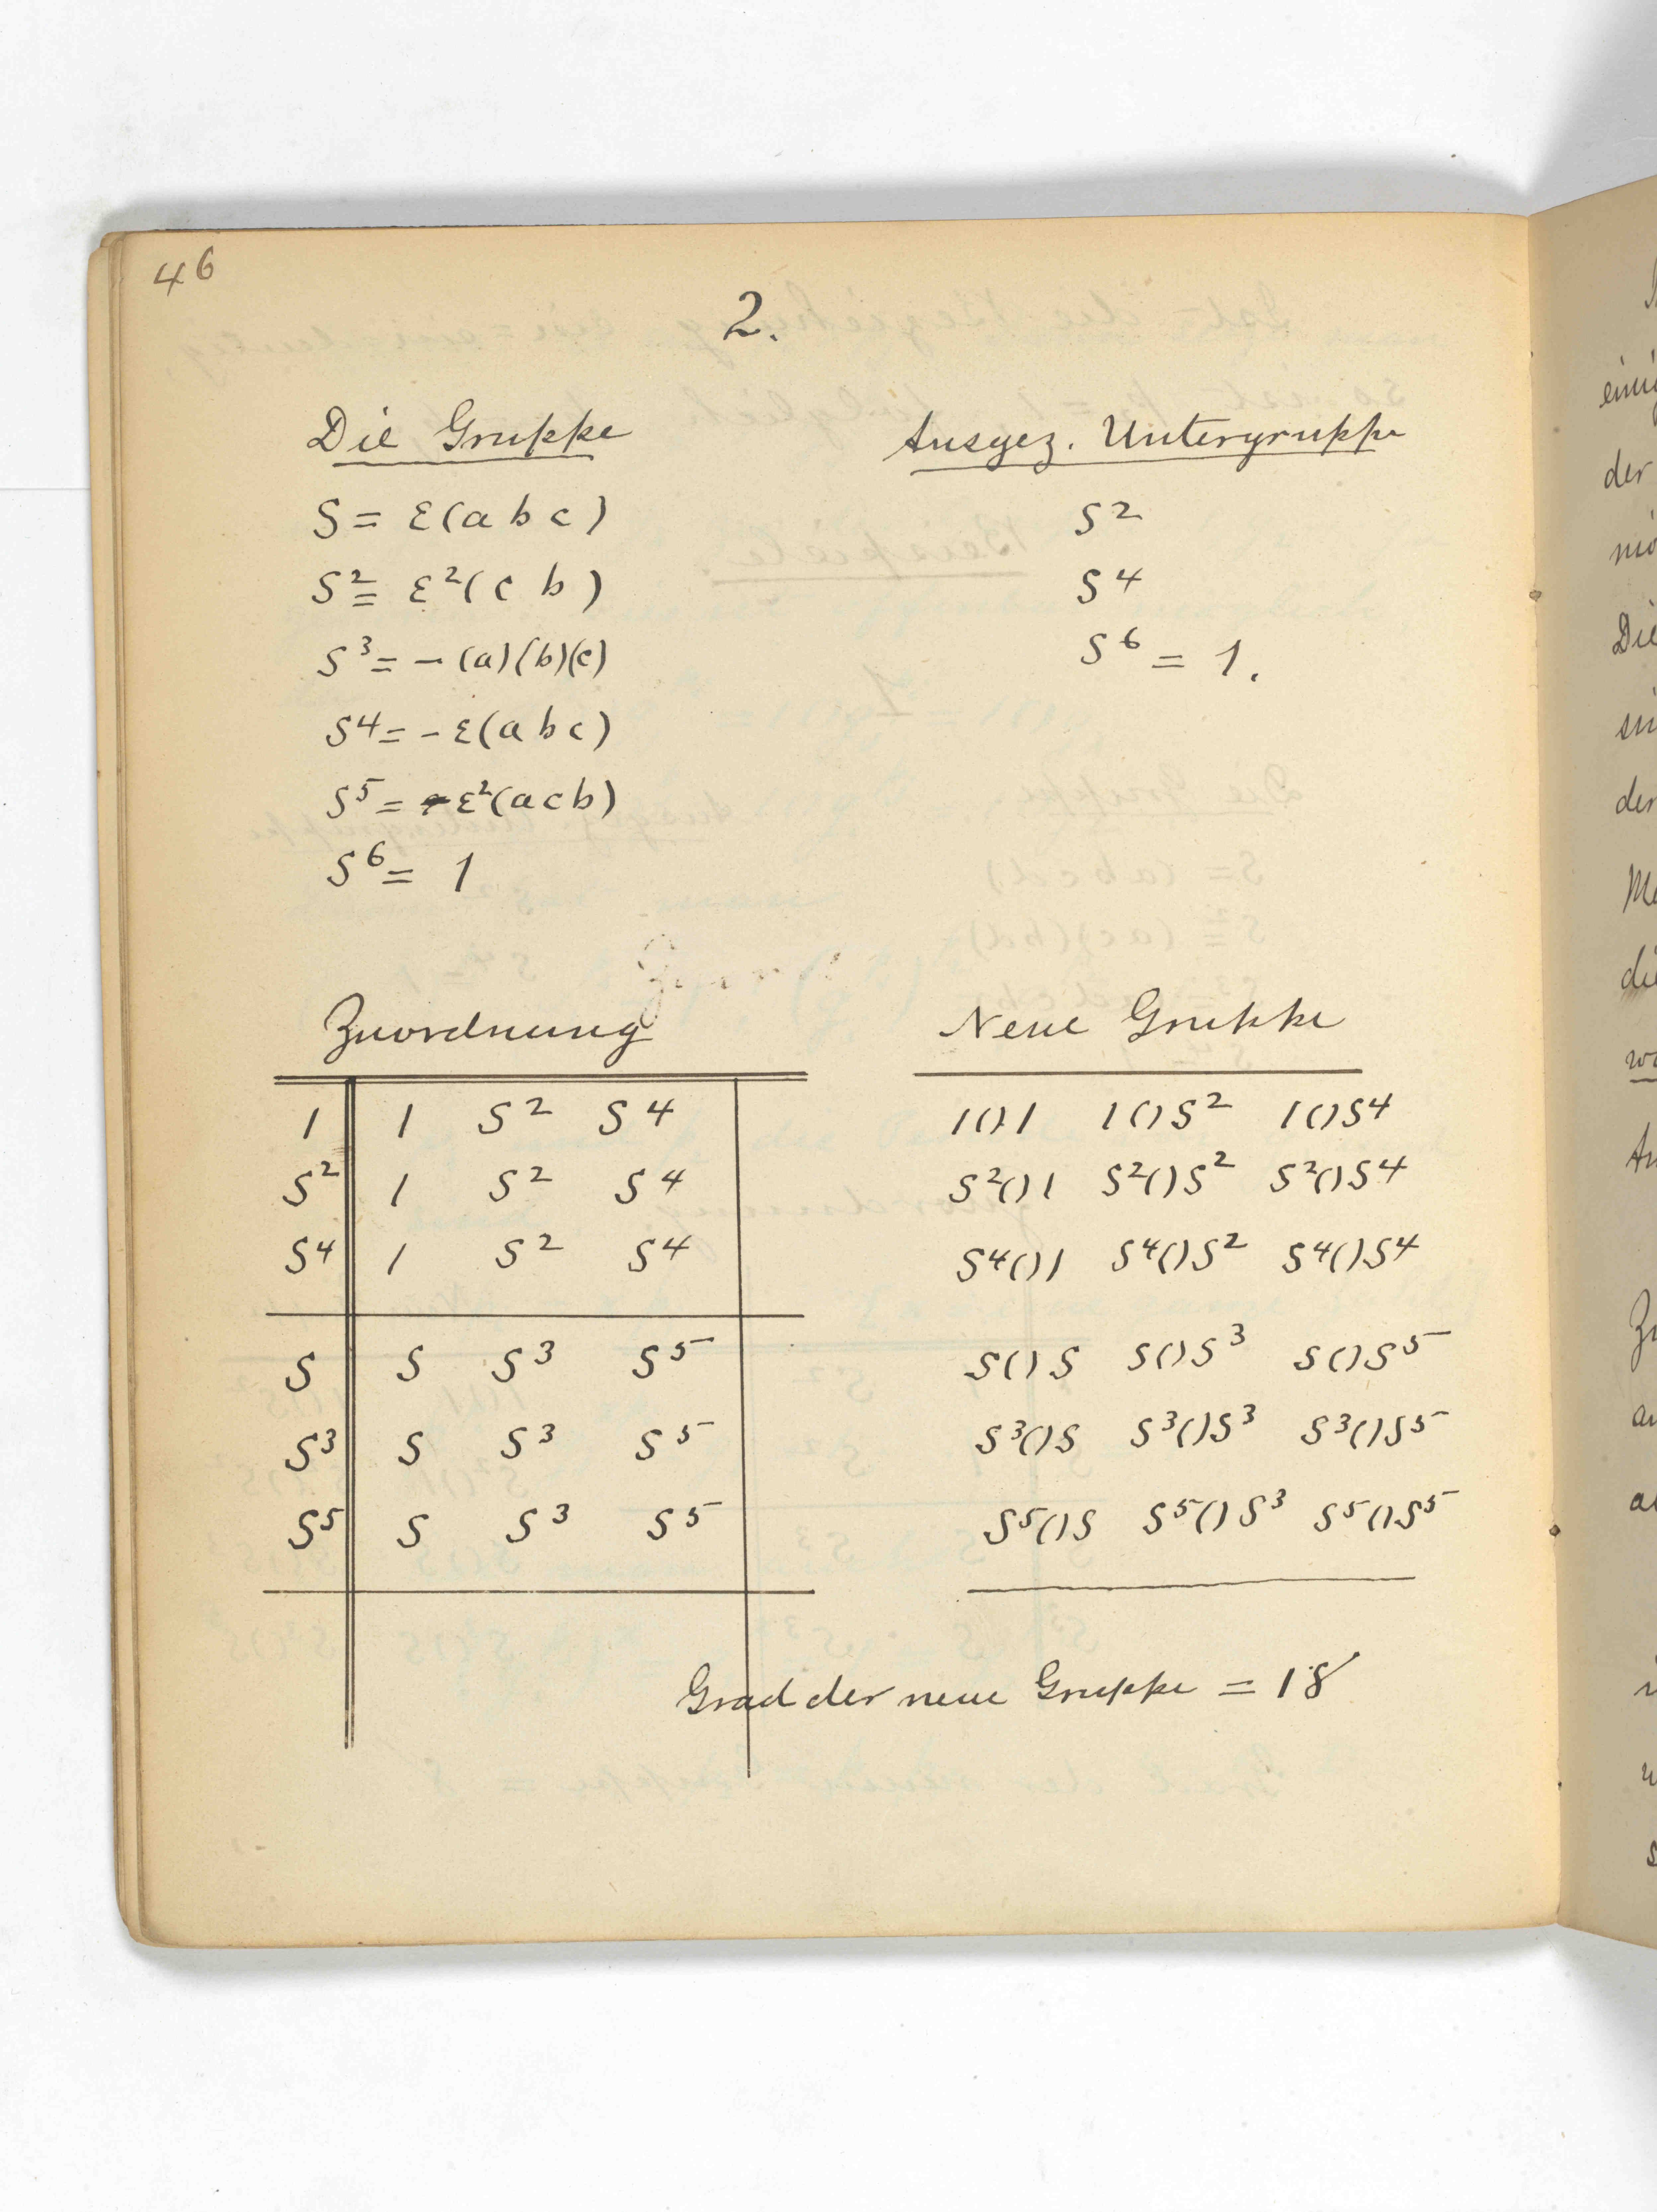 46
2.
Die Gruppe
S = ε(a b c)
S² = ε²( c b )
S³ = - (a)(b)(c)
S⁴ = - ε(a b c)
S⁵ = - ε²(a c b)
S⁶ = 1
Ausgez. Untergruppe
S²
S⁴
S⁶ = 1.
Zuordnung
1 1 S² S⁴
S² 1 S² S⁴
S⁴ 1 S² S⁴
S S S³ S⁵
S³ S S³ S⁵
S⁵ S S³ S⁵
Neue Gruppe
1()1 1()S² 1()S⁴
S²()1 S²()S² S²()S⁴
S⁴()1 S⁴()S² S⁴()S⁴
S()S S()S³ S()S⁵
S³()S S³()S³ S³()S⁵
S⁵()S S⁵()S³ S⁵()S⁵
Grad der neue Gruppe = 18
der
Die
der